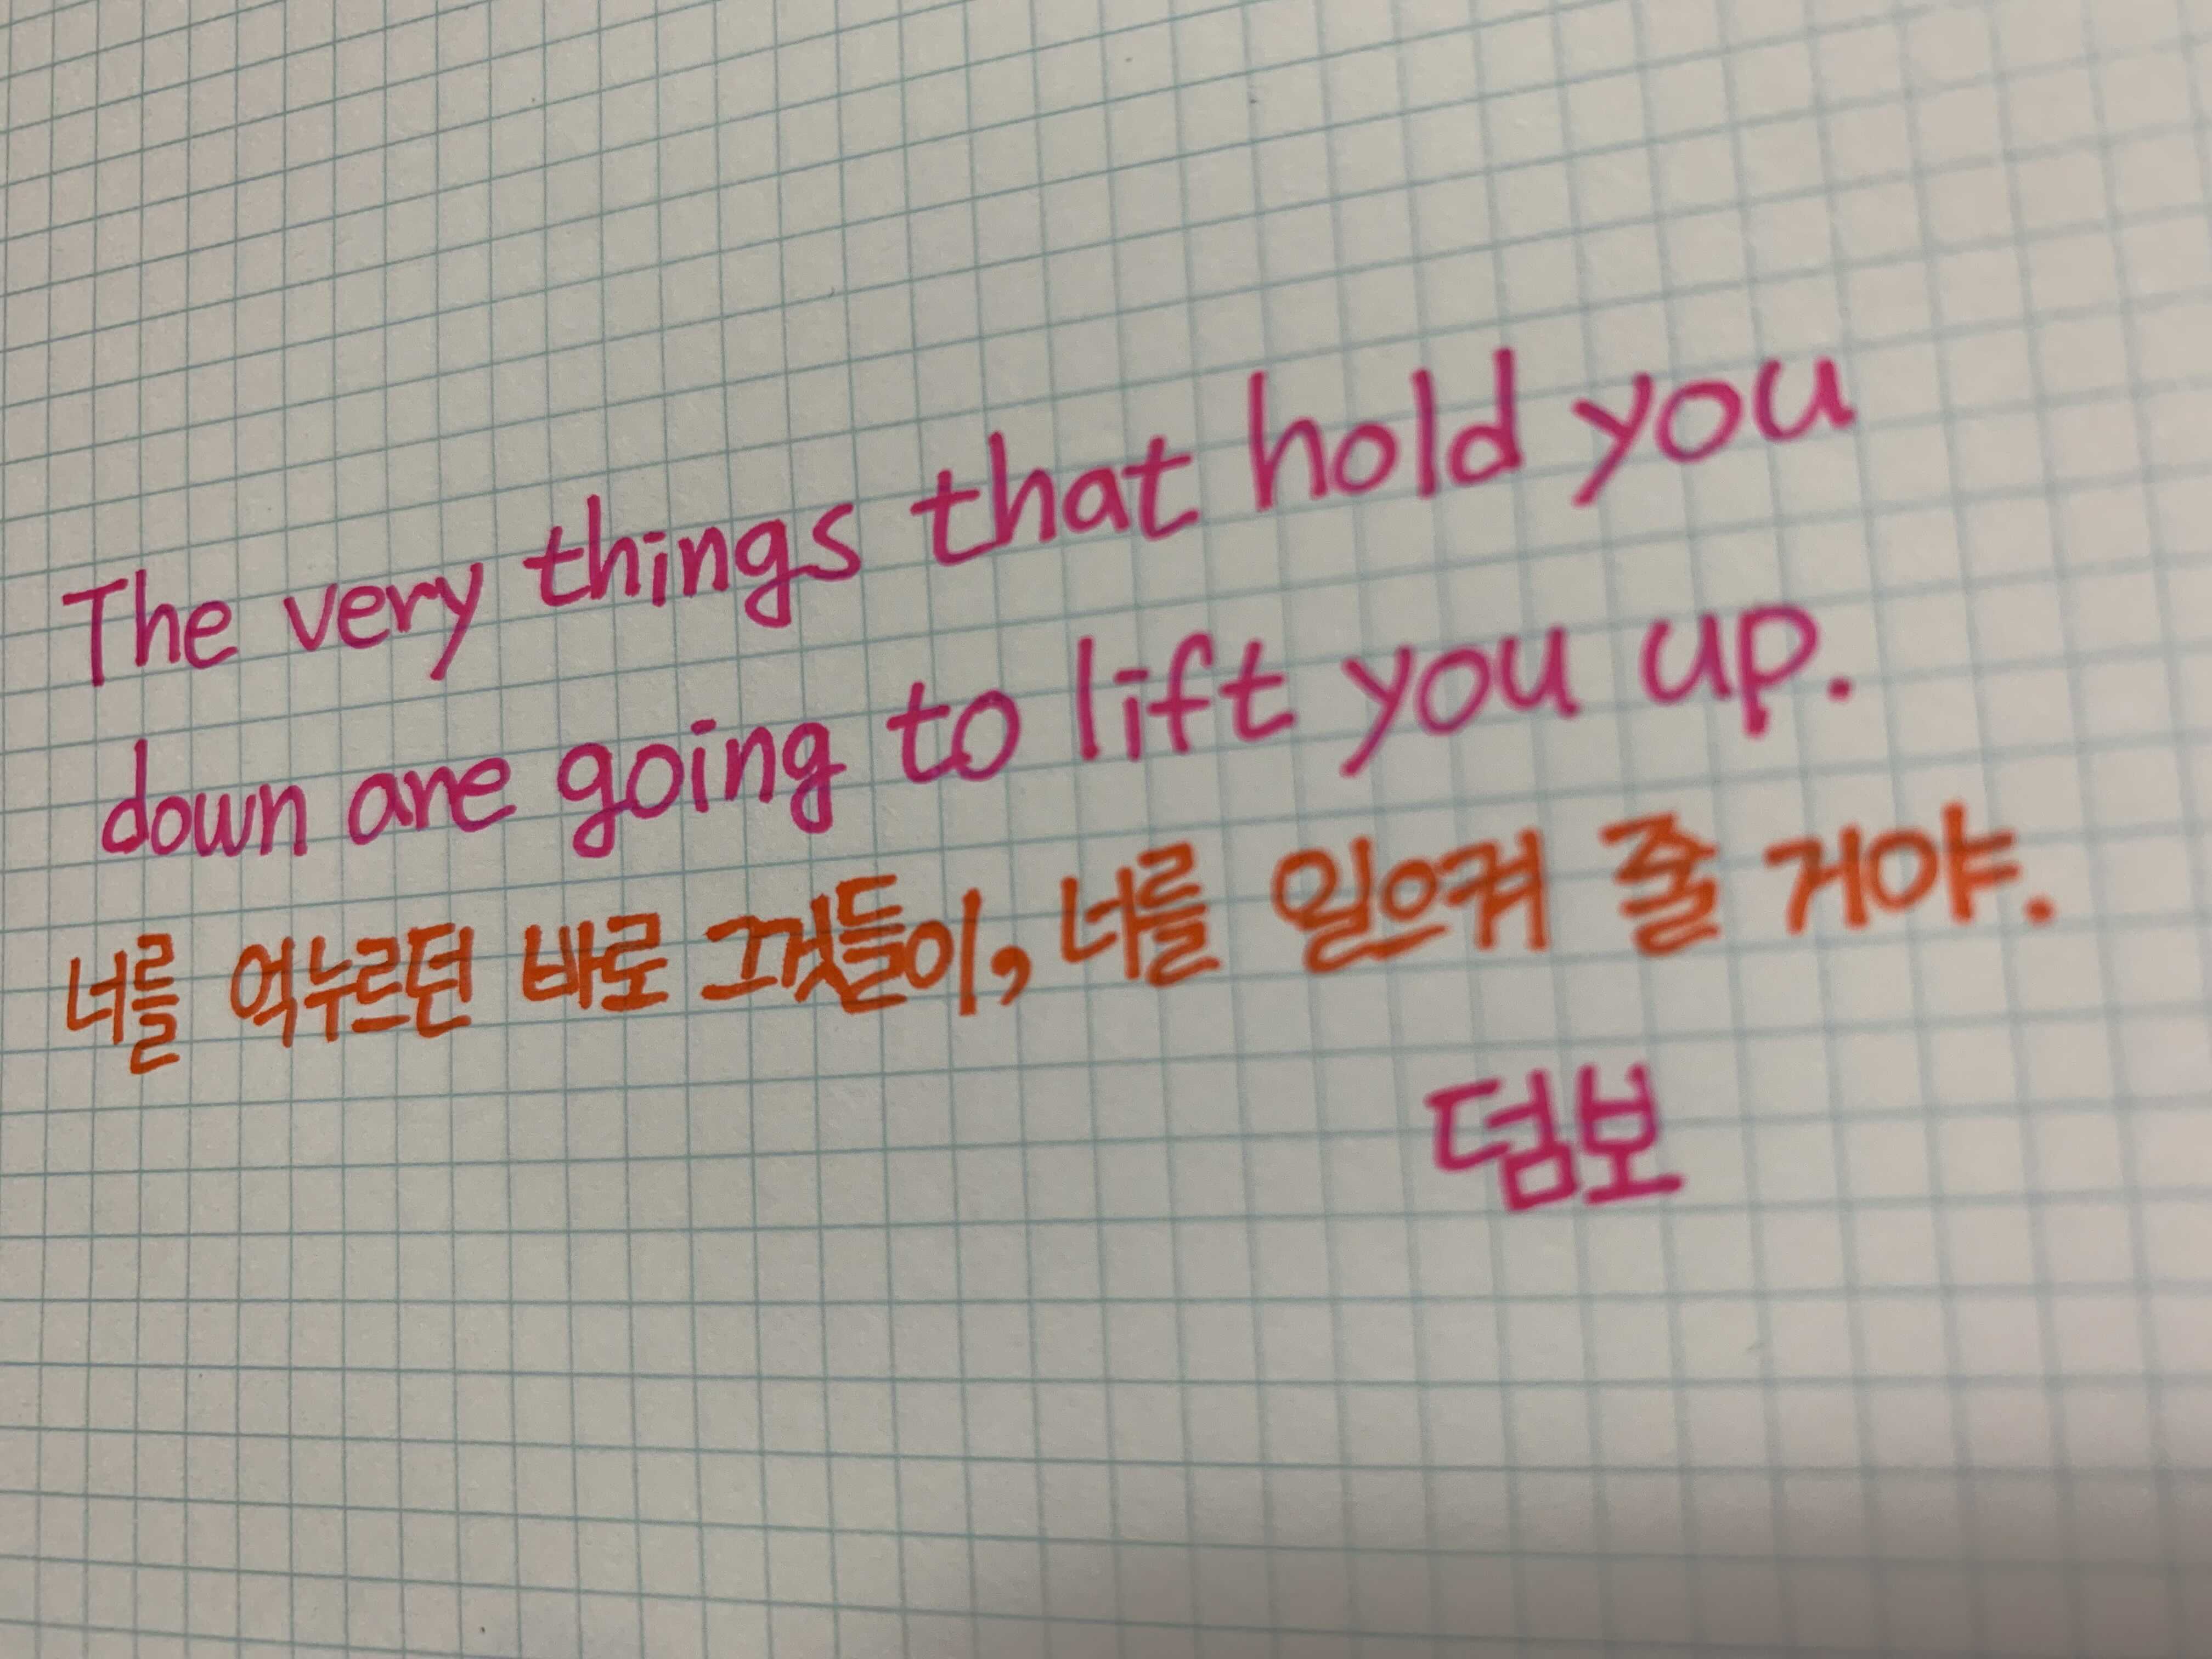 The very things that hold you
down are going to lift you up.
너를 억누르던 바로 그것들이, 너를 일으켜 줄 거야.
덤보